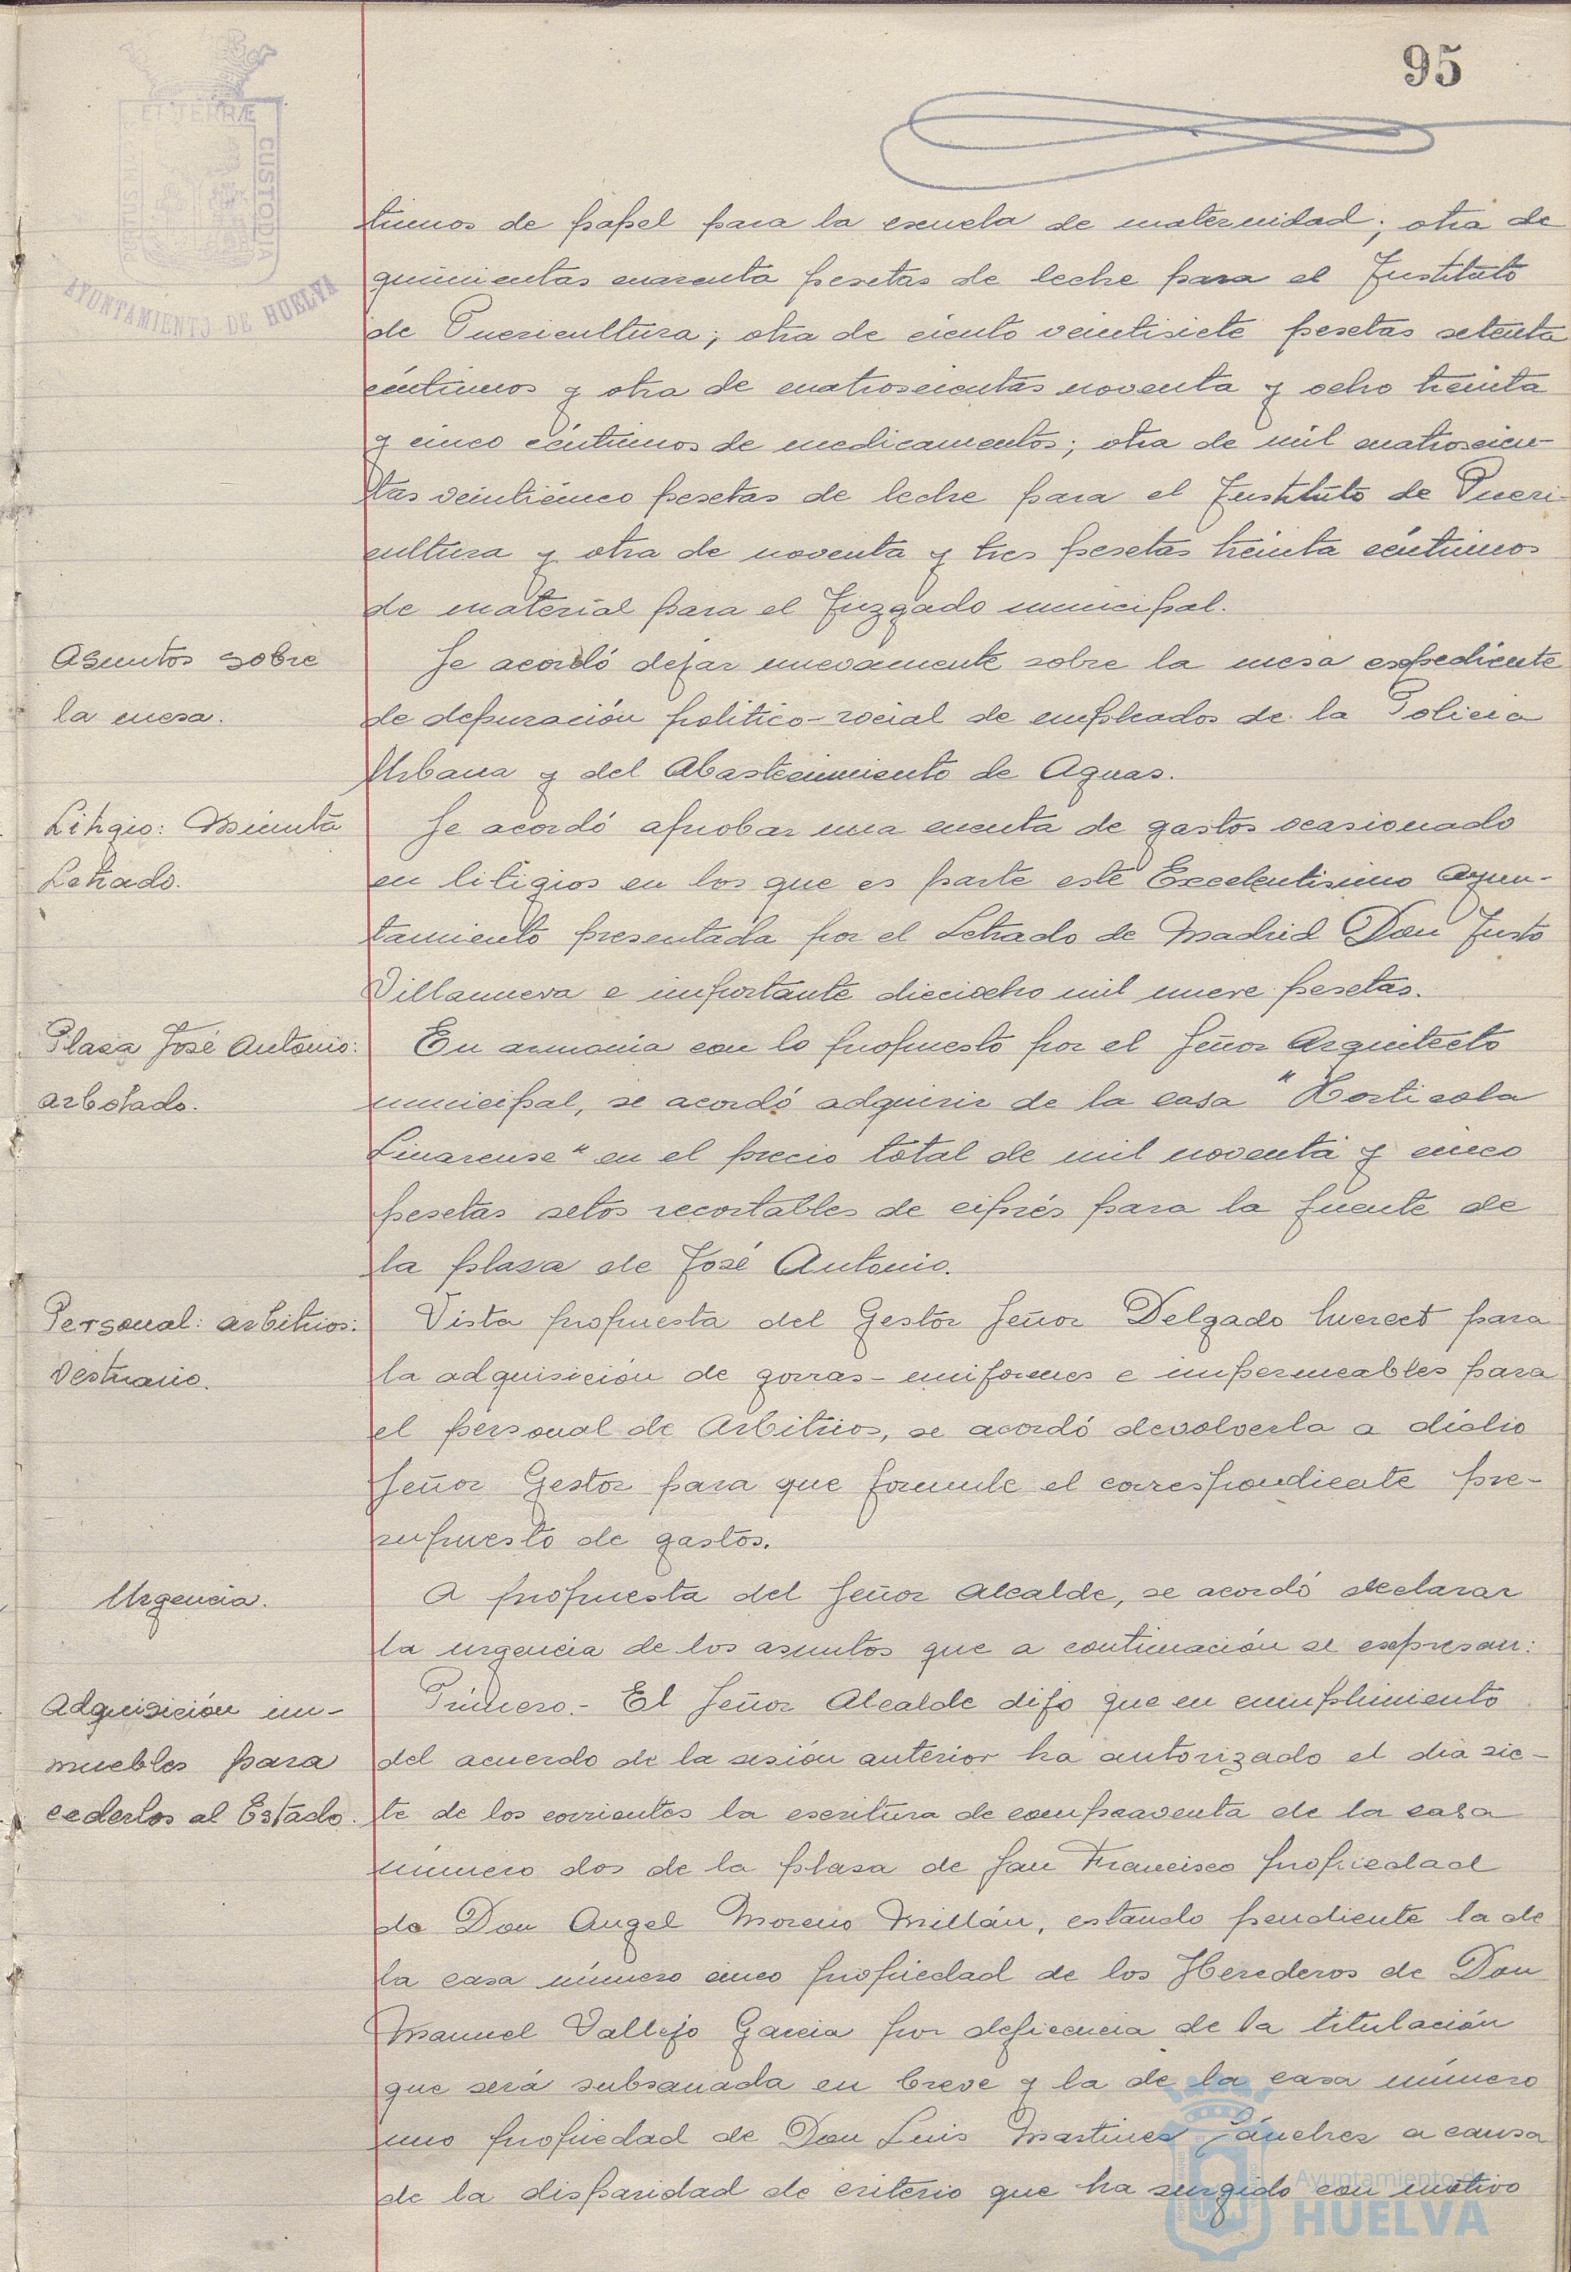 95
PORTUS MARIS
ET TERRÆ
CUSTODIA
AYUNTAMIENTO DE HUELVA
timos de papel para la escuela de maternidad; otra de
quinientas cuarenta pesetas de leche para el Instituto
de Puericultura; otra de ciento veintisiete pesetas setenta
céntimos y otra de cuatroscientas noventa y ocho treinta
y cinco céntimos de medicamentos; otra de mil cuatroscien-
tas veinticinco pesetas de leche para el Instituto de Pueri-
cultura y otra de noventa y tres pesetas treinta céntimos
de material para el Juzgado municipal.
Asuntos sobre
la mesa.
Se acordó dejar nuevamente sobre la mesa expediente
de depuración politico-social de empleados de la Policia
Urbana y del Abastecimiento de Aguas.
Litigio: Minuta
Letrado.
Se acordó aprobar una cuenta de gastos ocasionado
en litigios en los que es parte este Excelentisimo Ayun-
tamiento presentada por el Letrado de Madrid Don Justo
Villanueva e importante dieciocho mil nueve pesetas.
Plaza José Antonio:
arbolado.
En armonia con lo propuesto por el Señor Arquitecto
municipal, se acordó adquirir de la casa "Horticola
Linarense" en el precio total de mil noventa y cinco
pesetas setos recortables de ciprés para la fuente de
la plaza de José Antonio.
Personal: arbitrios:
Vestuario.
Vista propuesta del Gestor Señor Delgado para
la adquisición de gorras-uniformes e impermeables para
el personal de Arbitrios, se acordó devolverla a dicho
Señor Gestor para que formule el correspondiente pre-
supuesto de gastos.
Urgencia.
A propuesta del Señor Alcalde, se acordó declarar
la urgencia de los asuntos que a continuación se expresan:
Adquisición in-
muebles para
cederlos al Estado.
Primero.- El Señor Alcalde dijo que en cumplimiento
del acuerdo de la sesión anterior ha autorizado el dia sie-
te de los corrientes la escritura de compraventa de la casa
número dos de la plaza de San Francisco propiedad
de Don Angel Moreno Millán, estando pendiente la de
la casa número cinco propiedad de los Herederos de Don
Manuel Vallejo Garcia por deficencia de la titulación
que será subsanada en breve y la de la casa número
uno propiedad de Don Luis Martinez Sánchez a causa
de la disparidad de criterio que ha surgido con motivo
Ayuntamiento de
HUELVA